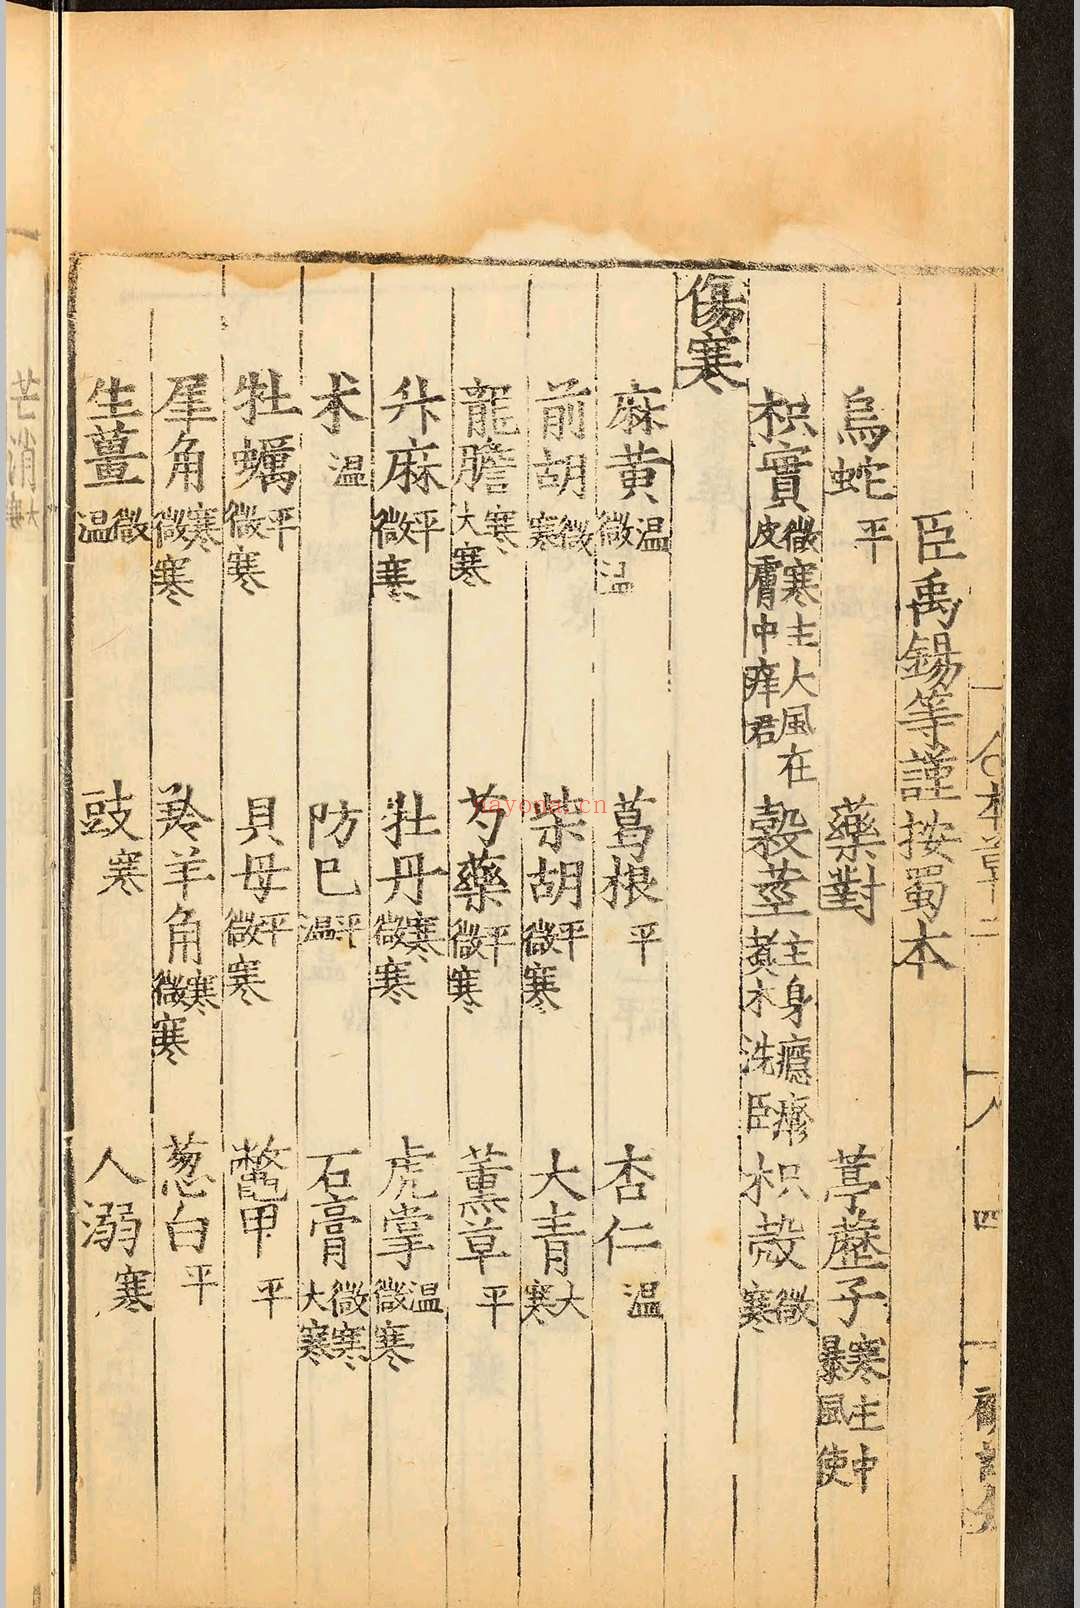 臣禹錫等謹按蜀本
烏蛇 平 藥對 葶藶子 寒主中暴風使
枳實 微寒主大風在皮膚中痒君 穀莖 主身癮疹煑水洗臣 枳殼 微寒
傷寒
麻黄 温微温 葛根 平 杏仁 温
前胡 微寒 柴胡 平微寒 大青 大寒
龍膽 寒大寒 芍藥 平微寒 薫草 平
升麻 平微寒 牡丹 寒微寒 虎掌 温微寒
术 温 防巳 平温 石膏 微寒大寒
牡蠣 平微寒 貝母 平微寒 鼈甲 平
犀角 寒微寒 羚羊角 寒微寒 葱白 平
生薑 微温 豉 寒 人溺 寒
芒消 大寒
nayona.cn